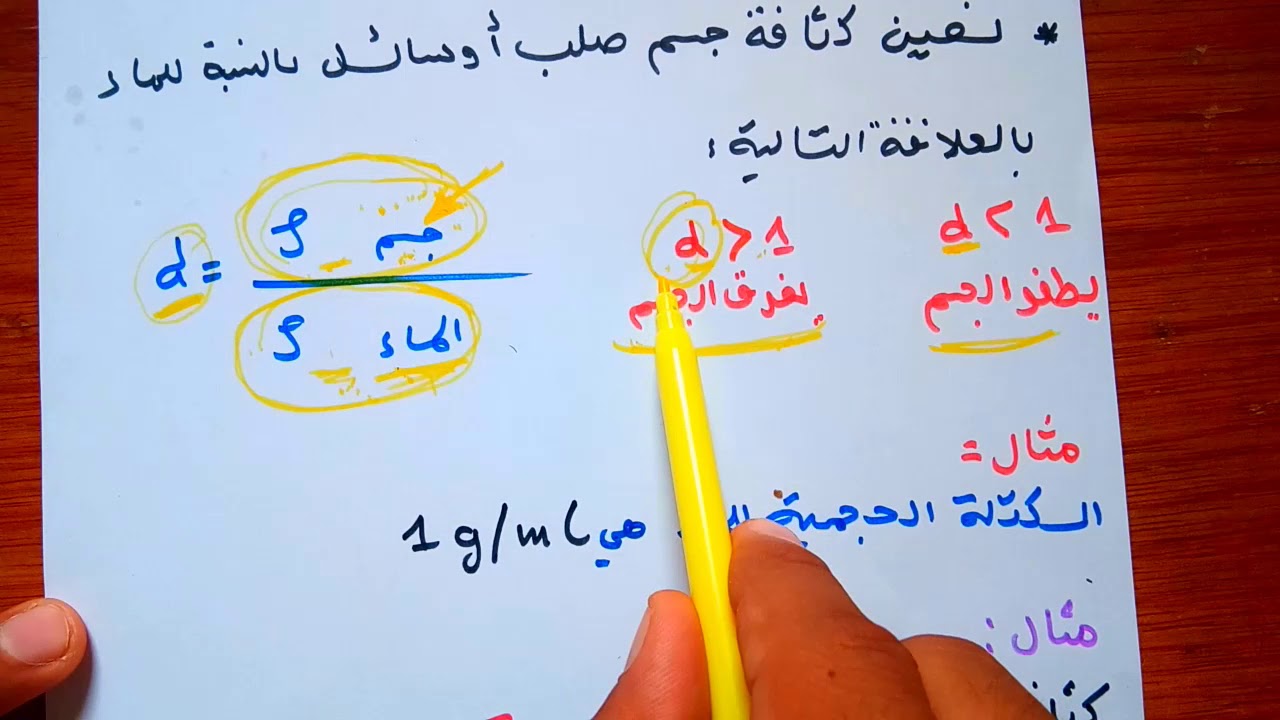 * نعين كثافة جسم صلب أو سائل بالنسبة للماء
بالعلاقة التالية :
d < 1
يطفو الجسم
d > 1
يغرق الجسم
d = ρ جسم / ρ الماء
مثال =
الكتلة الحجمية هي 1 g/mL
مثال :